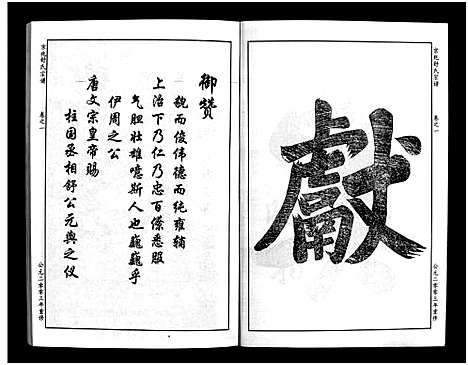 獻
京兆舒氏宗谱
卷之一
公元二零零三年重修
御赞
貌而俊伟德而纯雍辅
上治下乃仁乃忠百僚悉服
气胆壮雄噫斯人也巍巍乎
伊周之公
唐文宗皇帝赐
柱国丞相舒公元舆之仪
京兆舒氏宗谱
卷之一
公元二零零三年重修